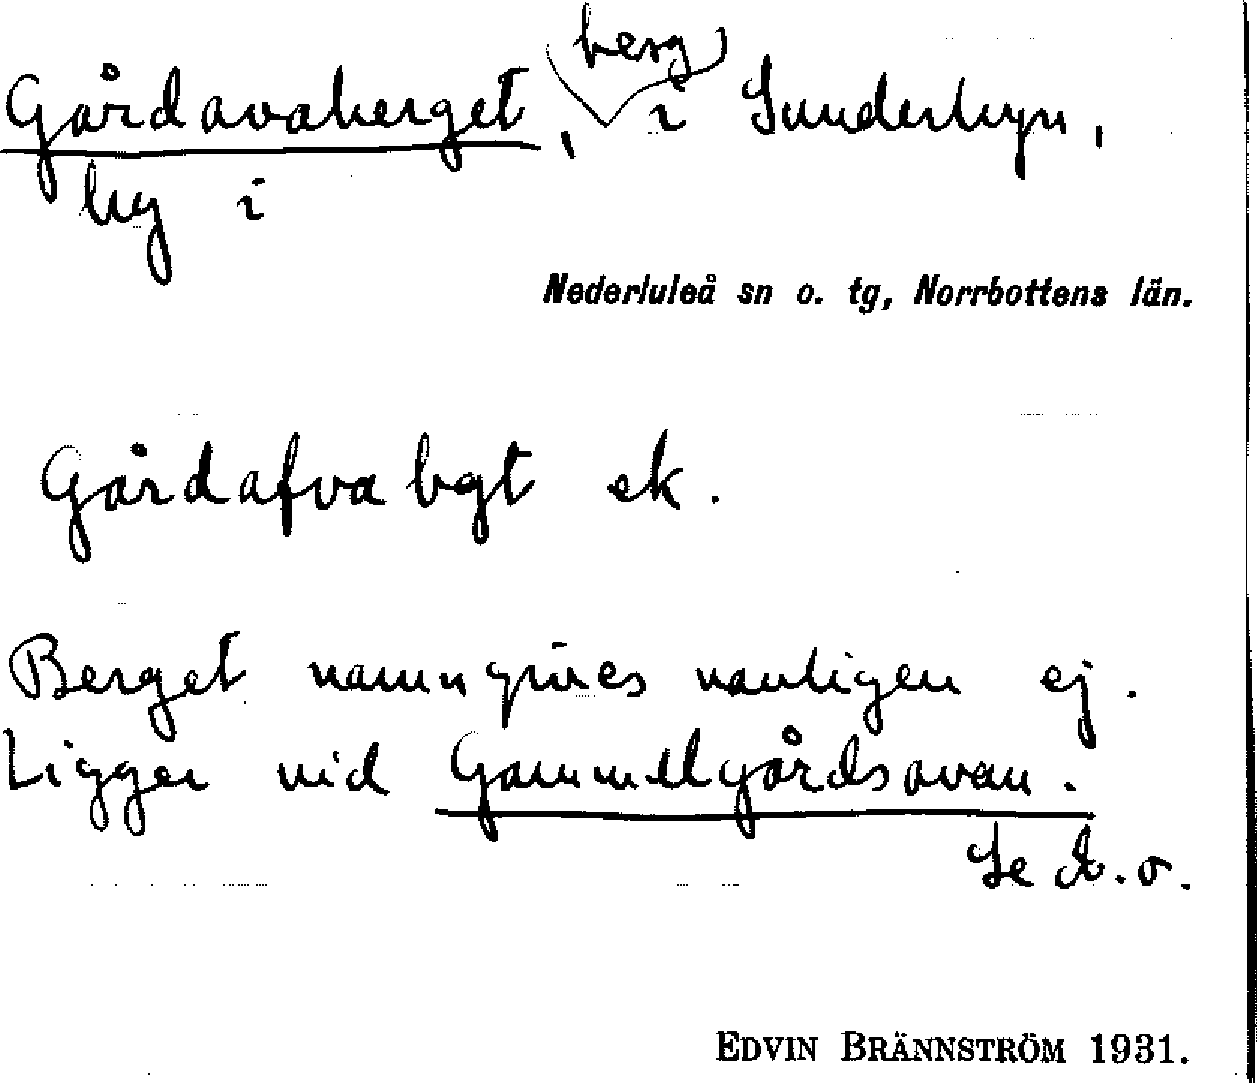 Gårdavaberget, berg i Sunderbyn,
by i
Nederluleå sn o. tg, Norrbottens län.
Gårdafva bgt ek.
Berget namngives vanligen ej.
Ligger vid Gammelgårdsavan.
Se d. o.
EDVIN BRÄNNSTRÖM 1931.